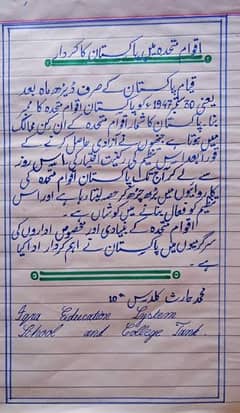 اقوام متحدہ میں پاکستان کا کردار
قیام پاکستان کے صرف ڈیڑھ ماہ بعد
یعنی 30 ستمبر 1947ء کو پاکستان اقوام متحدہ کا ممبر
بنا۔ پاکستان کا شمار اقوام متحدہ کے ان رکن ممالک
میں ہوتا ہے جنہوں نے آزادی حاصل کرنے کے
فوراً بعد اس تنظیم کی رکنیت اختیار کی اس روز
سے لے کر آج تک پاکستان اقوام متحدہ کی
کارروائیوں میں بڑھ چڑھ کر حصہ لیتا رہا ہے اور اس
تنظیم کو فعال بنانے میں کوشاں ہے۔
اقوام متحدہ کے بنیادی اور مختصر میں اداروں کی
سرگرمیوں میں پاکستان نے اہم کردار ادا کیا
ہے۔
محمد حارث کلاس 10th
Iqra Education System
School and College Tank